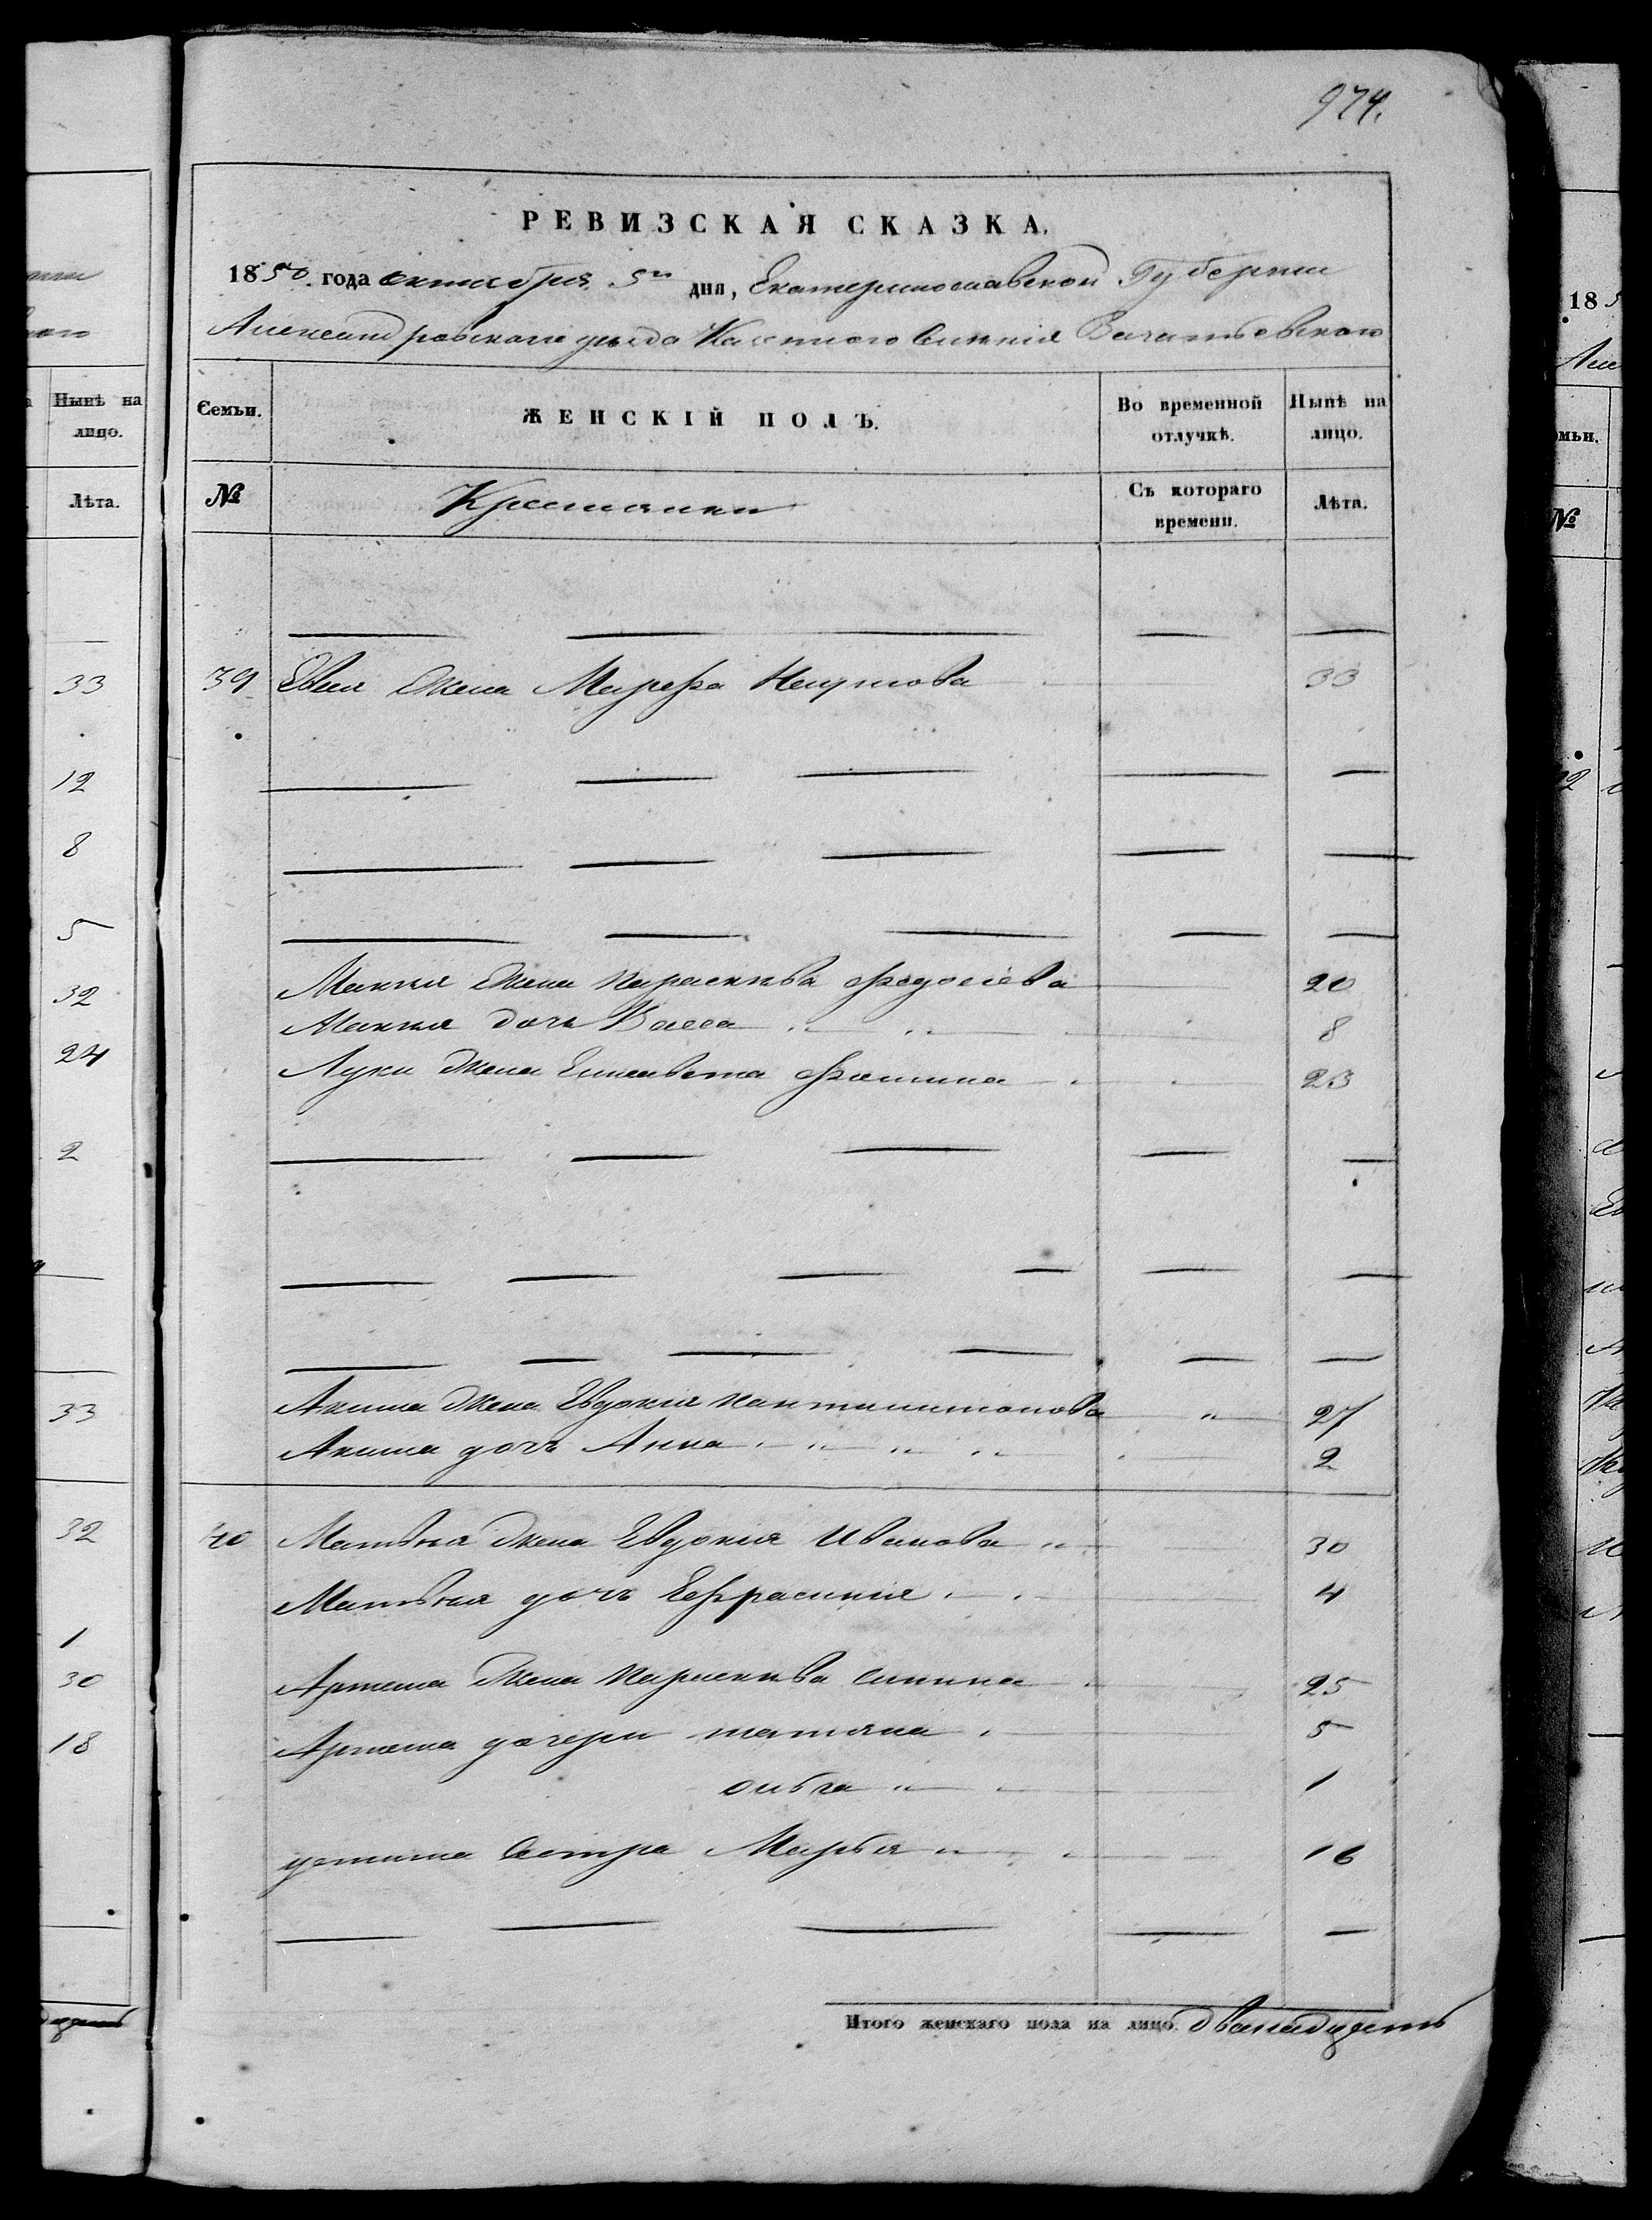 974.
РЕВИЗСКАЯ СКАЗКА.
1850. года октября 5го дня, Екатеринославской Губернии
Александровского уезда Казенного Селения Зачатьевского
Семьи.
ЖЕНСКІЙ ПОЛЪ.
Во временной отлучкѣ.
Нынѣ на лицо.
№
Крестянки
Съ котораго времени.
Лѣта.
39 Жена Марефа 33
Жена Параскева Федосіева 20
дочь Васса 8
Луки Жена Елисавета Фомина 23
Акима Жена Евдокия Пантилимонова 27
Акима дочь Анна 2
40 Матвѣя Жена Евдокія Иванова 30
Матвѣя дочь Ефрасинія 4
Артема Жена Параскева 25
Артема дочери татяна 5
ольга 1
Сестра Марья 16
Итого женскаго пола на лицо. дванадцать
Нынѣ на лицо.
Лѣта.
33
12
8
5
32
24
2
33
32
1
30
18